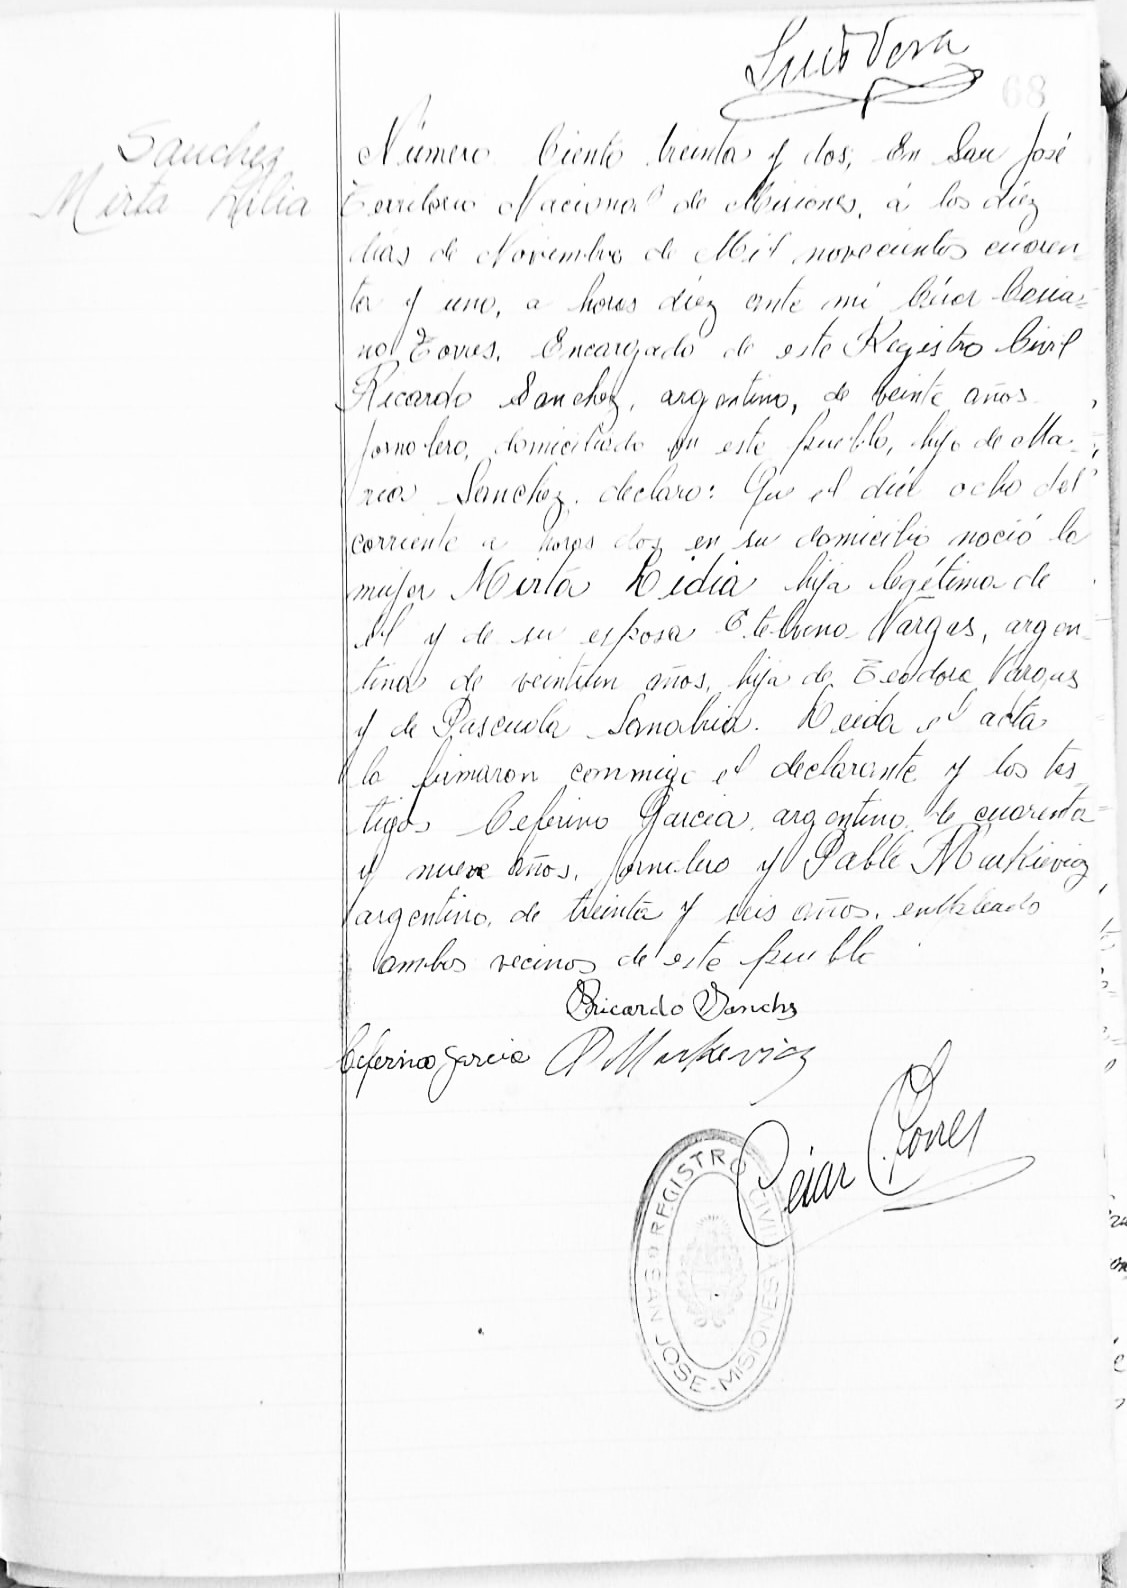 Vera
68
Sanchez
Mirta Lilia
Número Ciento treinta y dos; En San José
Territorio Nacional de Misiones, á los diéz
días de Noviembre de Mil novecientos cuaren-
ta y uno, a horas diéz ante mi César
Torres, Encargado de este Registro Civil
Ricardo Sanchez, argentino, de veinte años
jornalero, domiciliado en este pueblo, hijo de Ma-
ria Sanchez. declaro: Que el diá ocho del
corriente a horas dos en su domicilio nació la
mujer Mirta Lidia hija legítima de
él y de su esposa Etelvina Vargas, argen-
tina de veintiun años, hija de Teodora Vargas
y de Pascuala Sanabria. Leida el acta
la firmaron conmigo el declarante y los tes-
tigos Ceferino Garcia, argentino de cuarenta
y nueve años, jornalero y Pablo Markievicz
argentino, de treinta y seis años, empleado
ambos vecinos de este pueblo
Ricardo Sanchz
Ceferino Garcia P Markevicz
César Torres
REGISTRO CIVIL
SAN JOSE - MISIONES